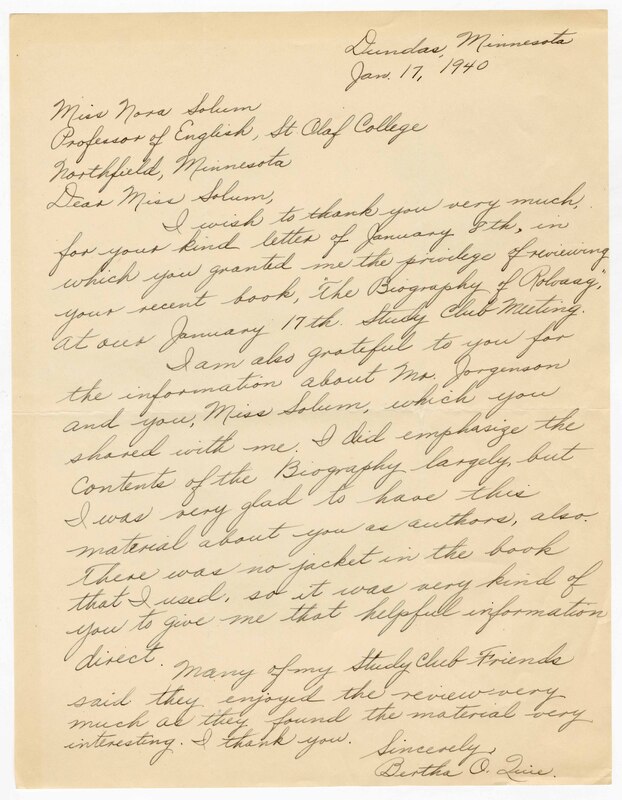 Dundas, Minnesota
Jan. 17, 1940
Miss Nora Solum
Professor of English, St Olaf College
Northfield, Minnesota
Dear Miss Solum,
I wish to thank you very much,
for your kind letter of January 8th, in
which you granted me the privilege of reviewing
your recent book, "The Biography of Rolvaag,"
at our January 17th Study Club Meeting.
I am also grateful to you for
the information about Mr. Jorgenson
and you, Miss Solum, which you
shared with me. I did emphasize the
contents of the Biography largely, but
I was very glad to have this
material about you as authors, also.
There was no jacket in the book
that I used, so it was very kind of
you to give me that helpful information
direct.
Many of my Study Club Friends
said they enjoyed the review very
much as they found the material very
interesting. I thank you.
Sincerely,
Bertha O. Quie.